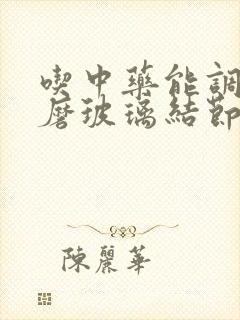 喫中藥能調
磨玻璃結節
陳麗華